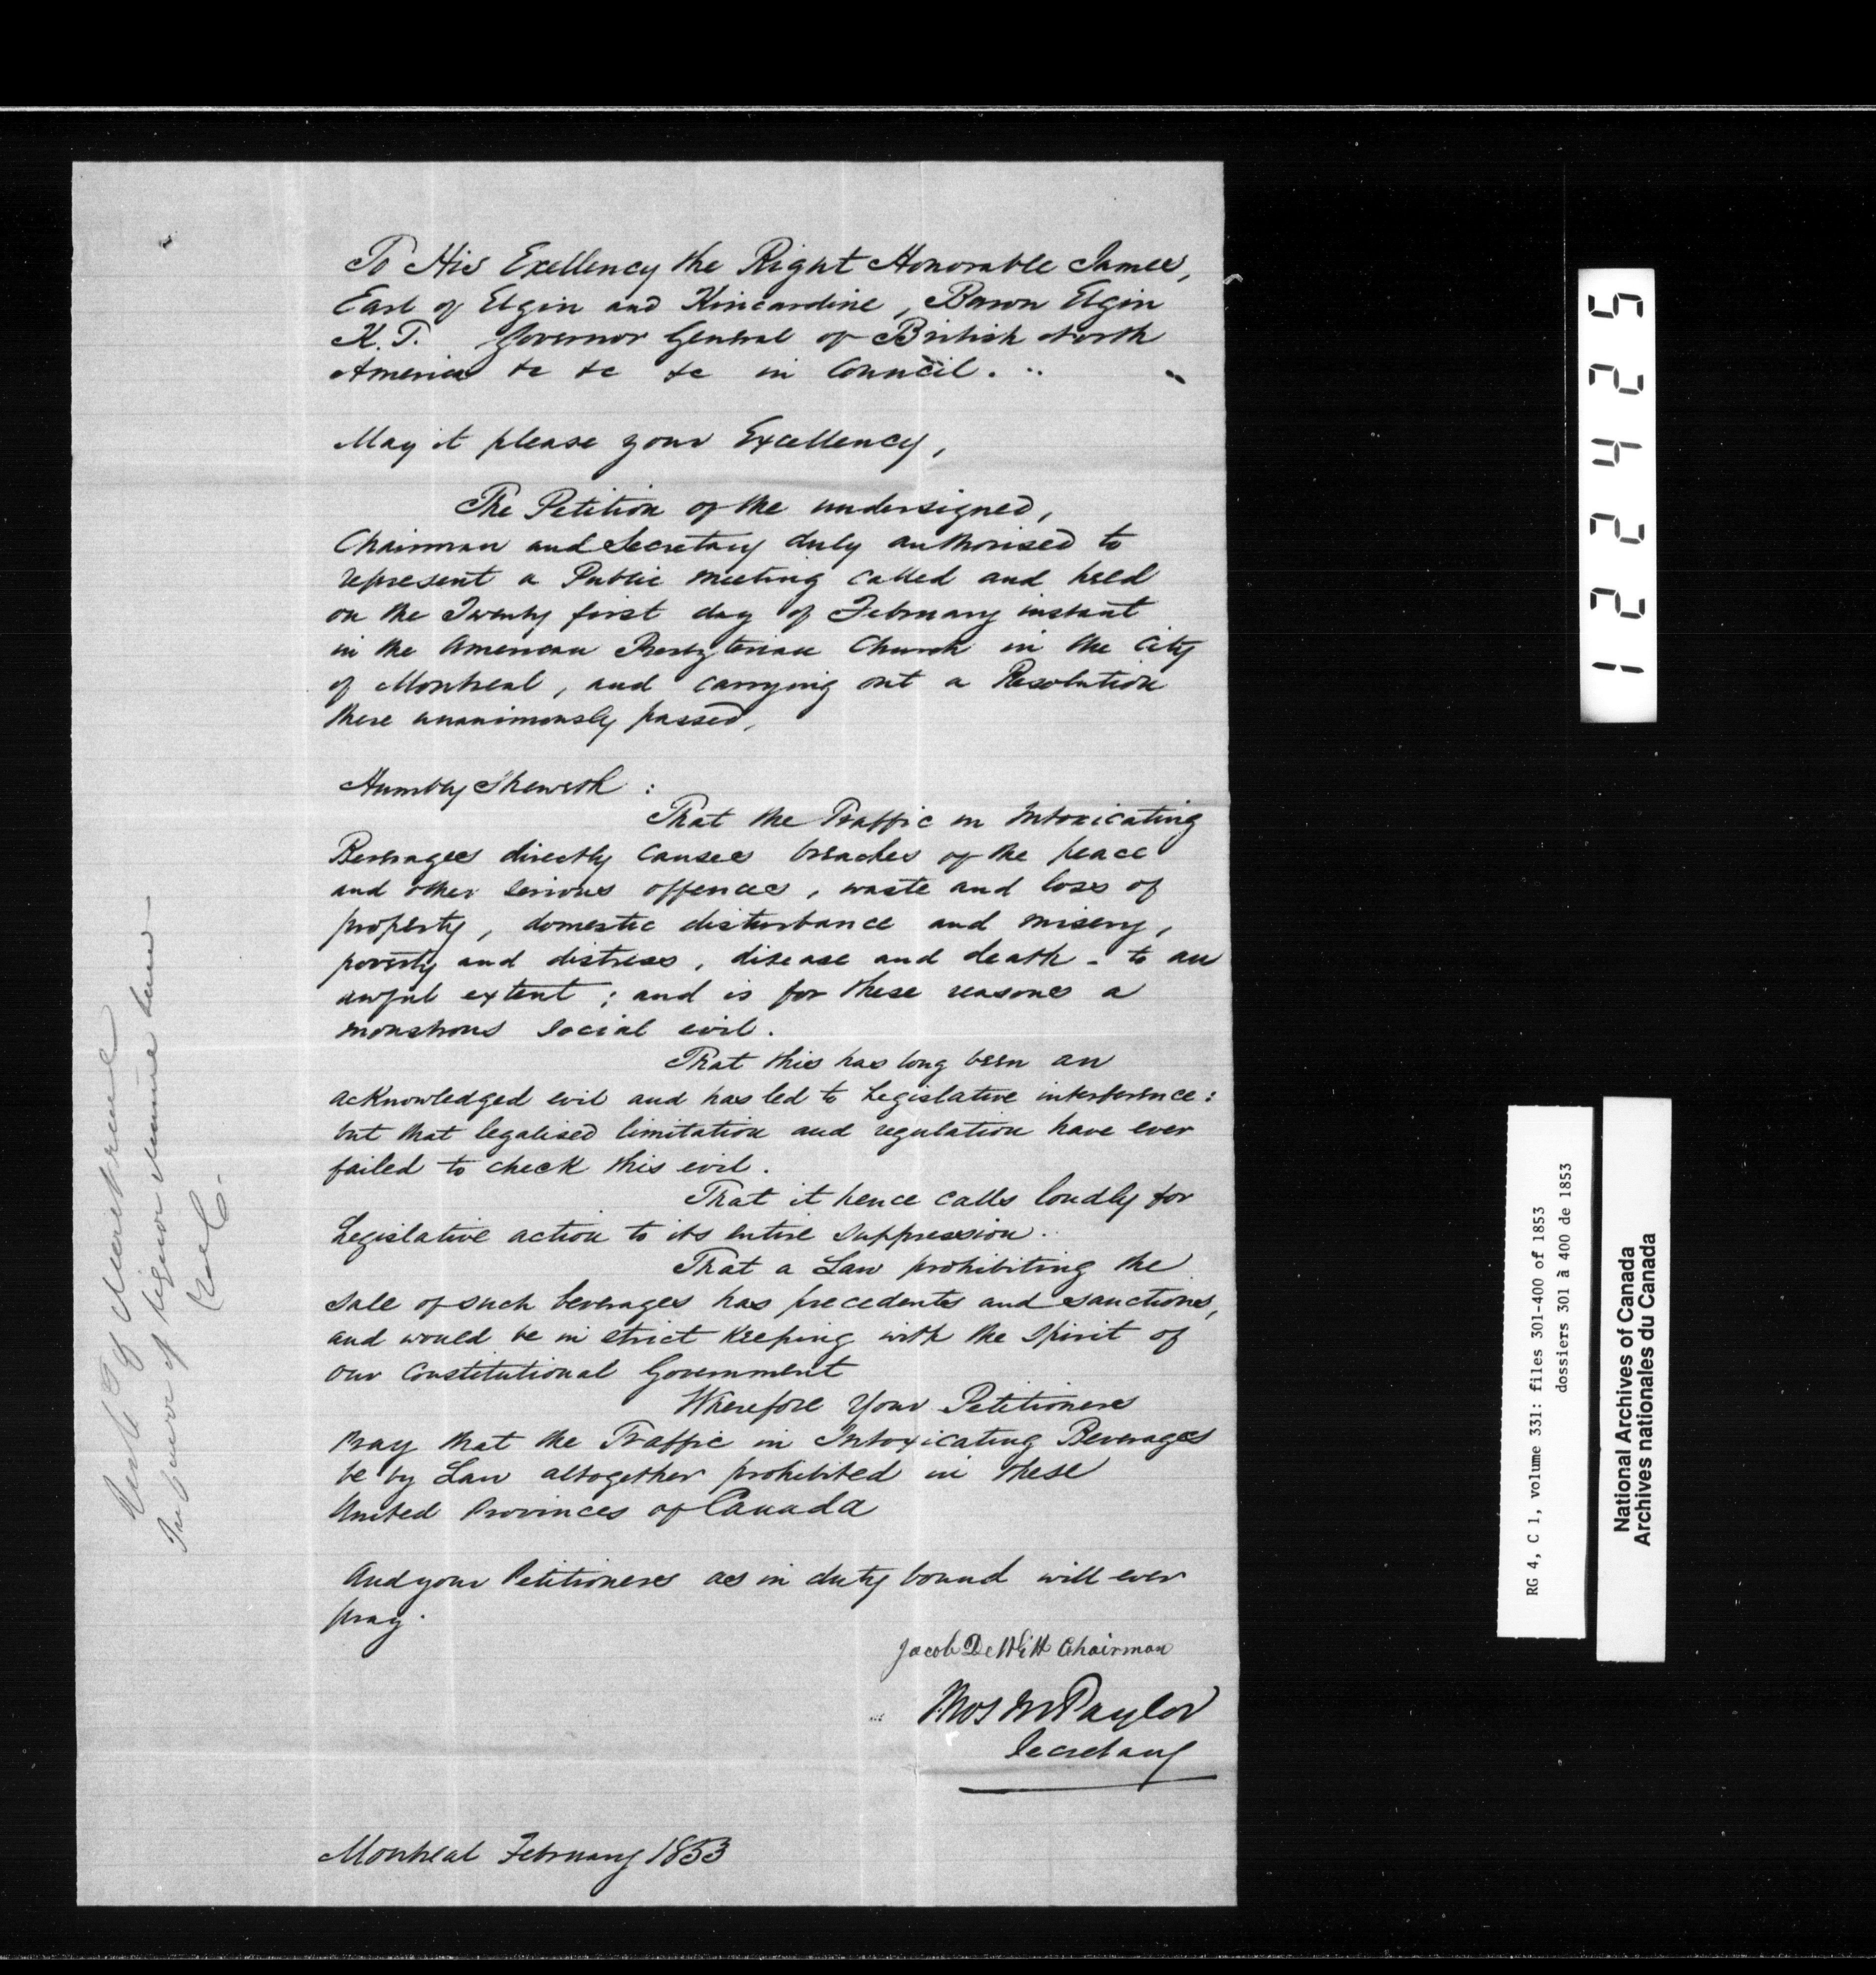 To His Exellency the Right Honorable James,
Earl of Elgin and Kincardine, Baron Elgin
K.T. Governor General of British North
America &c &c &c in Council.
May it please your Excellency,
The Petition of the undersigned,
Chairman and Secretary duly authorised to
represent a Public meeting called and held
on the Twenty first day of February instant
in the American Presbyterian Church in the City
of Montreal, and carrying out a Resolution
there unanimously passed,
Humbly Sheweth :
That the Traffic in Intoxicating
Beverages directly causes breaches of the peace
and other serious offences, waste and loss of
property, domestic disturbance and misery,
poverty and distress, disease and death - to an
awful extent ; and is for these reasons a
monstrous social evil.
That this has long been an
acknowledged evil and has led to Legislative interference :
but that legalised limitation and regulation have ever
failed to check this evil.
That it hence calls loudly for
Legislative action to its entire suppression.
That a Law prohibiting the
sale of such beverages has precedents and sanctions,
and would be in strict keeping with the spirit of
our Constitutional Government
Wherefore Your Petitioners
pray that the Traffic in Intoxicating Beverages
be by Law altogether prohibited in these
United Provinces of Canada
And your Petitioners as in duty bound will ever
pray.
Jacob DeWitt Chairman
Thos M Taylor
Secretary
Montreal February 1853
of Montreal
of Liquor
12425
RG 4, C 1, volume 331: files 301-400 of 1853
dossiers 301 à 400 de 1853
National Archives of Canada
Archives nationales du Canada